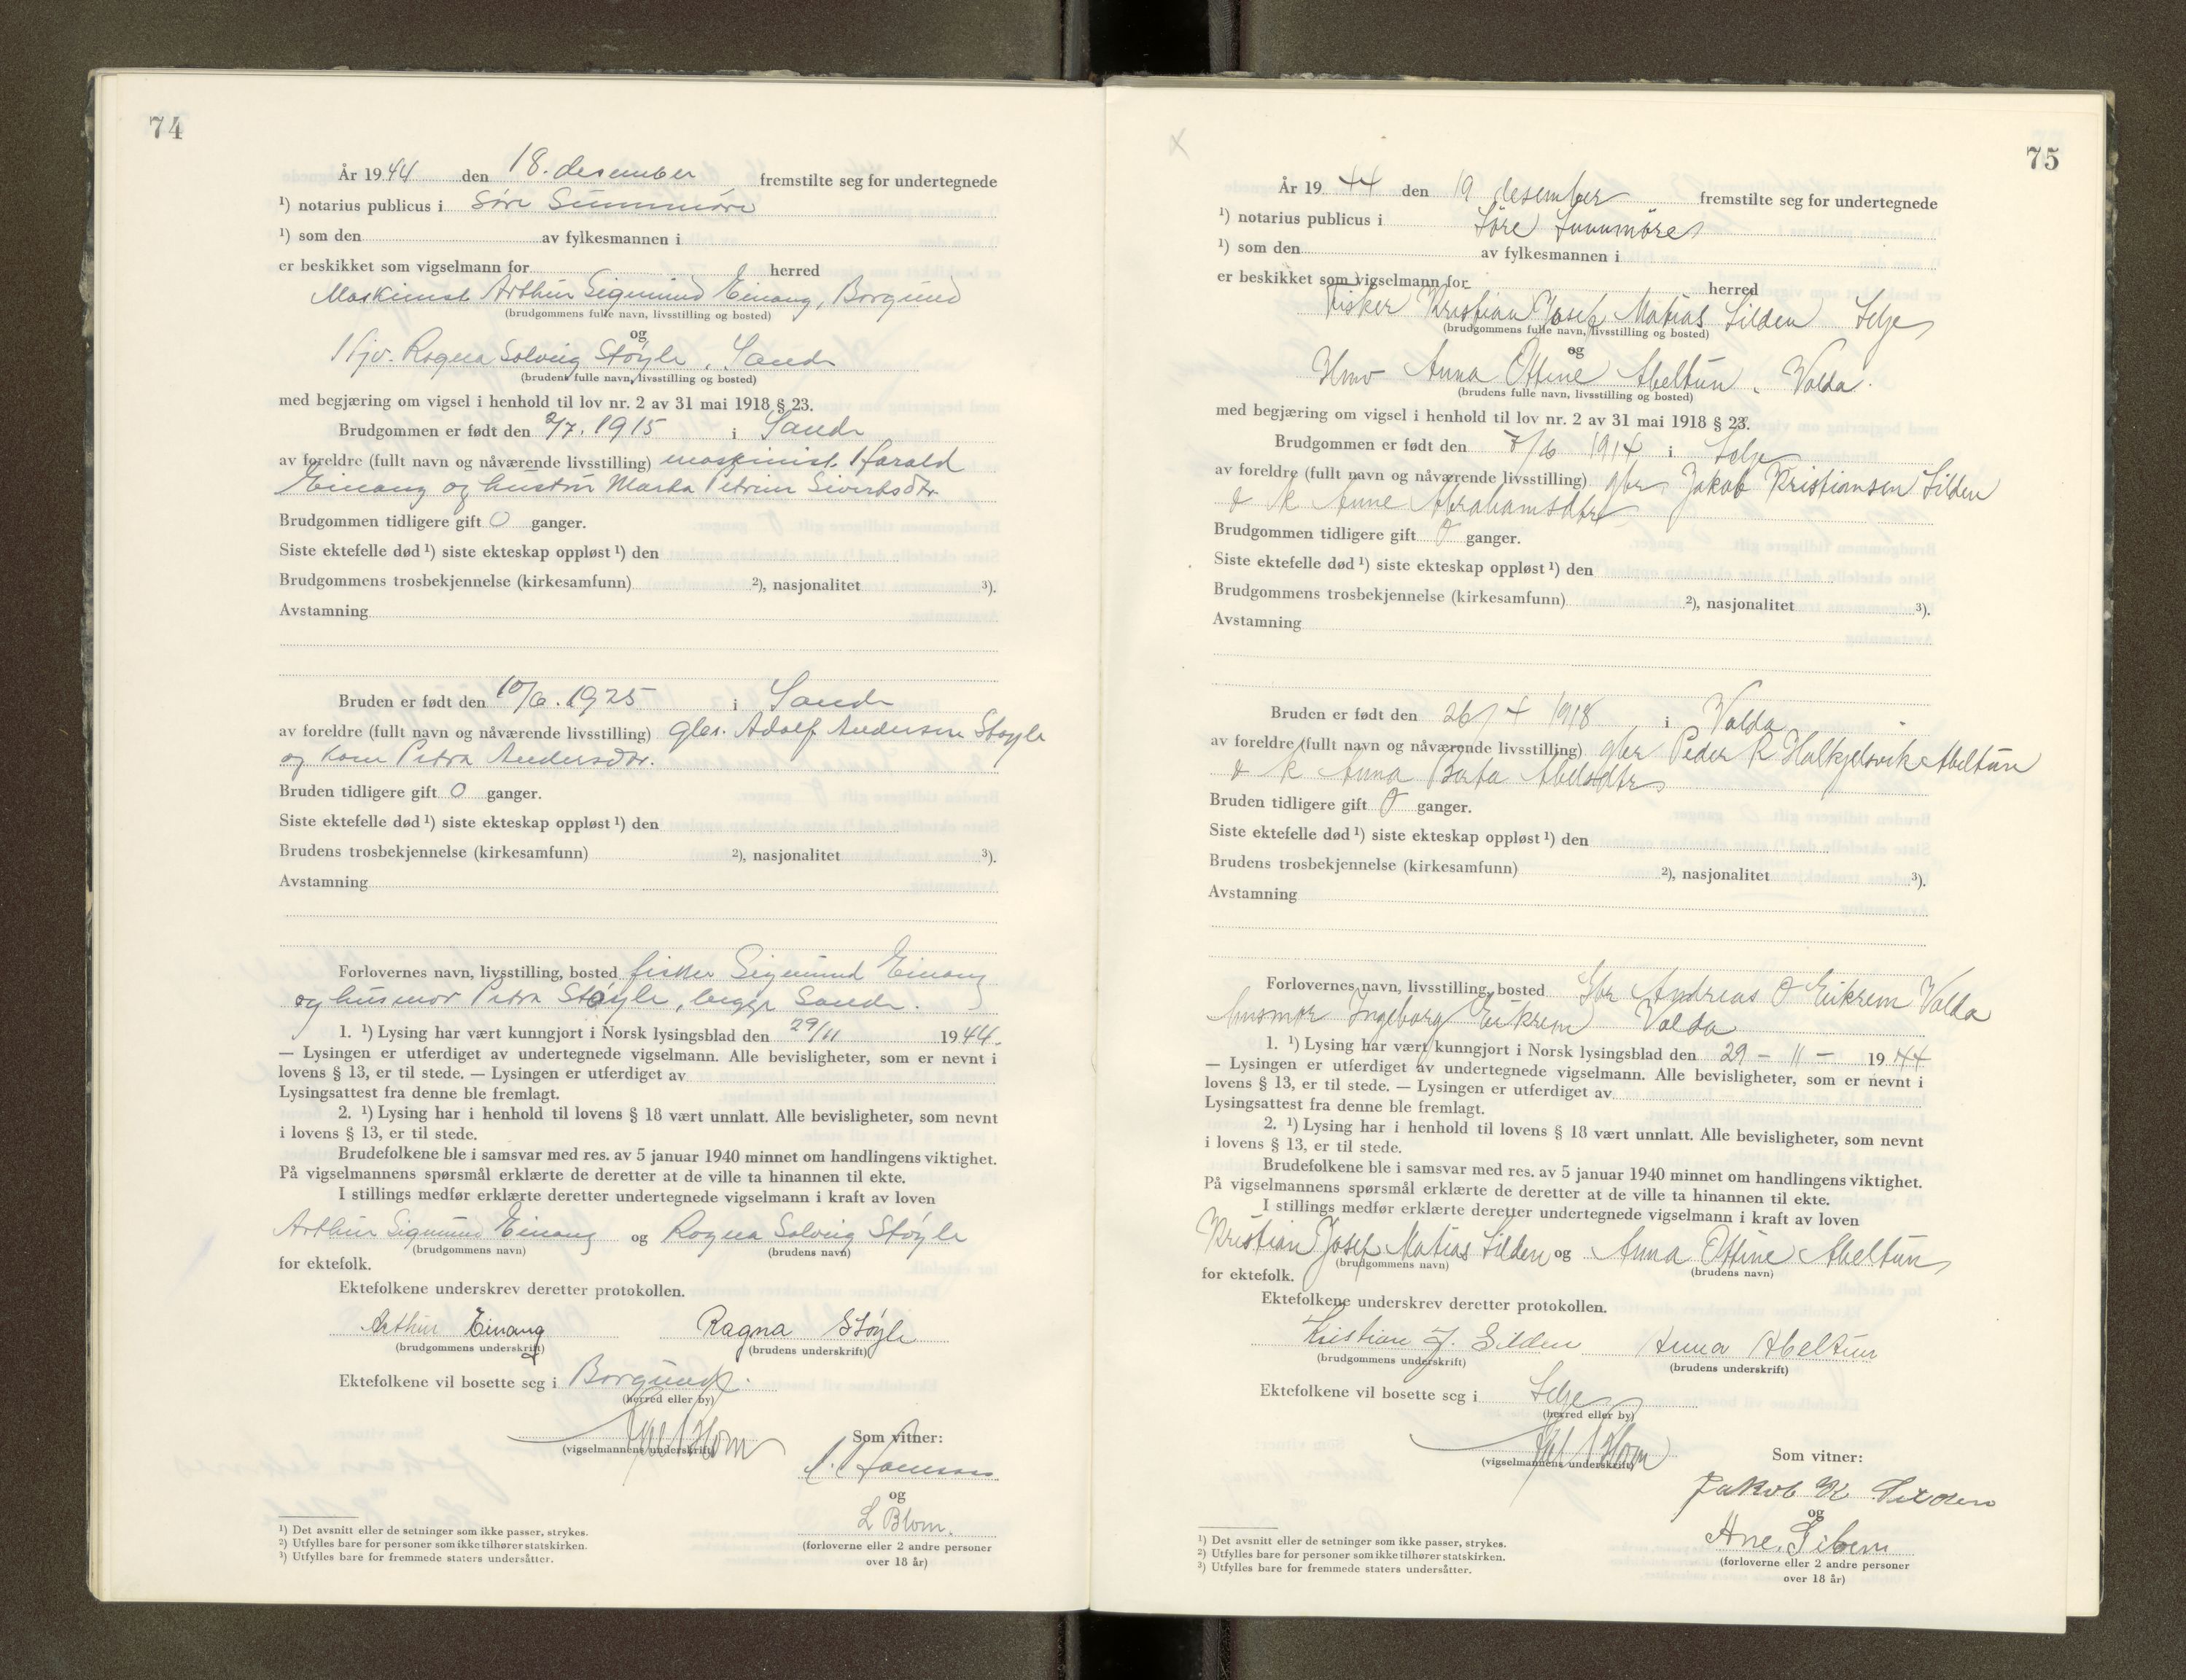 74
År 1944 den 18. desember fremstilte seg for undertegnede
¹) notarius publicus i Søre Sunnmøre
¹) som den av fylkesmannen i
er beskikket som vigselmann for herred
Maskinist Arthur Sigmund Einang, Borgund
(brudgommens fulle navn, livsstilling og bosted)
og
Hjv. Ragna Solveig Støyle, Sande
(brudens fulle navn, livsstilling og bosted)
med begjæring om vigsel i henhold til lov nr. 2 av 31 mai 1918 § 23.
Brudgommen er født den 2/7. 1915 i Sande
av foreldre (fullt navn og nåværende livsstilling) maskinist Harald
Einang og hustru Marta Petrine Sivertsdtr.
Brudgommen tidligere gift 0 ganger.
Siste ektefelle død ¹) siste ekteskap oppløst ¹) den
Brudgommens trosbekjennelse (kirkesamfunn) ²), nasjonalitet ³).
Avstamning
Bruden er født den 10/6. 1925 i Sande
av foreldre (fullt navn og nåværende livsstilling) gbr. Adolf Andersen Støyle
og kone Petra Andersdtr.
Bruden tidligere gift 0 ganger.
Siste ektefelle død ¹) siste ekteskap oppløst ¹) den
Brudens trosbekjennelse (kirkesamfunn) ²), nasjonalitet ³).
Avstamning
Forlovernes navn, livsstilling, bosted fisker Sigmund Einang
og husmor Petra Støyle, begge Sande.
1. ¹) Lysing har vært kunngjort i Norsk lysingsblad den 29/11 1944.
— Lysingen er utferdiget av undertegnede vigselmann. Alle bevisligheter, som er nevnt i
lovens § 13, er til stede. — Lysingen er utferdiget av
Lysingsattest fra denne ble fremlagt.
2. ¹) Lysing har i henhold til lovens § 18 vært unnlatt. Alle bevisligheter, som nevnt
i lovens § 13, er til stede.
Brudefolkene ble i samsvar med res. av 5 januar 1940 minnet om handlingens viktighet.
På vigselmannens spørsmål erklærte de deretter at de ville ta hinannen til ekte.
I stillings medfør erklærte deretter undertegnede vigselmann i kraft av loven
Arthur Sigmund Einang og Ragna Solveig Støyle
(brudgommens navn) (brudens navn)
for ektefolk.
Ektefolkene underskrev deretter protokollen.
Arthur Einang Ragna Støyle
(brudgommens underskrift) (brudens underskrift)
Ektefolkene vil bosette seg i Borgund.
(herred eller by)
Blom
(vigselmannens underskrift)
Som vitner:
og
L Blom.
(forloverne eller 2 andre personer
over 18 år)
¹) Det avsnitt eller de setninger som ikke passer, strykes.
²) Utfylles bare for personer som ikke tilhører statskirken.
³) Utfylles bare for fremmede staters undersåtter.
75
År 1944 den 19 desember fremstilte seg for undertegnede
¹) notarius publicus i Søre Sunnmøre
¹) som den av fylkesmannen i
er beskikket som vigselmann for herred
Fisker Kristian Josef Matias Silden Selje
(brudgommens fulle navn, livsstilling og bosted)
og
Hmv Anna Ottine Abeltun, Volda.
(brudens fulle navn, livsstilling og bosted)
med begjæring om vigsel i henhold til lov nr. 2 av 31 mai 1918 § 23.
Brudgommen er født den 1914 i Selje
av foreldre (fullt navn og nåværende livsstilling) gbr Jakob Kristiansen Silden
& k Anne Abrahamsdtr
Brudgommen tidligere gift 0 ganger.
Siste ektefelle død ¹) siste ekteskap oppløst ¹) den
Brudgommens trosbekjennelse (kirkesamfunn) ²), nasjonalitet ³).
Avstamning
Bruden er født den 26/4 1918 i Volda
av foreldre (fullt navn og nåværende livsstilling) gbr Peder R Halkjelsvik Abeltun
& k Anna Berta Abelsdtr
Bruden tidligere gift 0 ganger.
Siste ektefelle død ¹) siste ekteskap oppløst ¹) den
Brudens trosbekjennelse (kirkesamfunn) ²), nasjonalitet ³).
Avstamning
Forlovernes navn, livsstilling, bosted Gbr Andreas O Eikrem Volda
husmor Ingeborg Eikrem Volda
1. ¹) Lysing har vært kunngjort i Norsk lysingsblad den 29 – 11 – 1944
— Lysingen er utferdiget av undertegnede vigselmann. Alle bevisligheter, som er nevnt i
lovens § 13, er til stede. — Lysingen er utferdiget av
Lysingsattest fra denne ble fremlagt.
2. ¹) Lysing har i henhold til lovens § 18 vært unnlatt. Alle bevisligheter, som nevnt
i lovens § 13, er til stede.
Brudefolkene ble i samsvar med res. av 5 januar 1940 minnet om handlingens viktighet.
På vigselmannens spørsmål erklærte de deretter at de ville ta hinannen til ekte.
I stillings medfør erklærte deretter undertegnede vigselmann i kraft av loven
Kristian Josef Matias Silden og Anna Ottine Abeltun
(brudgommens navn) (brudens navn)
for ektefolk.
Ektefolkene underskrev deretter protokollen.
Kristian J. Silden Anna Abeltun
(brudgommens underskrift) (brudens underskrift)
Ektefolkene vil bosette seg i Selje
(herred eller by)
Blom
(vigselmannens underskrift)
Som vitner:
Jakob K Silden
og
Ane Silden
(forloverne eller 2 andre personer
over 18 år)
¹) Det avsnitt eller de setninger som ikke passer, strykes.
²) Utfylles bare for personer som ikke tilhører statskirken.
³) Utfylles bare for fremmede staters undersåtter.